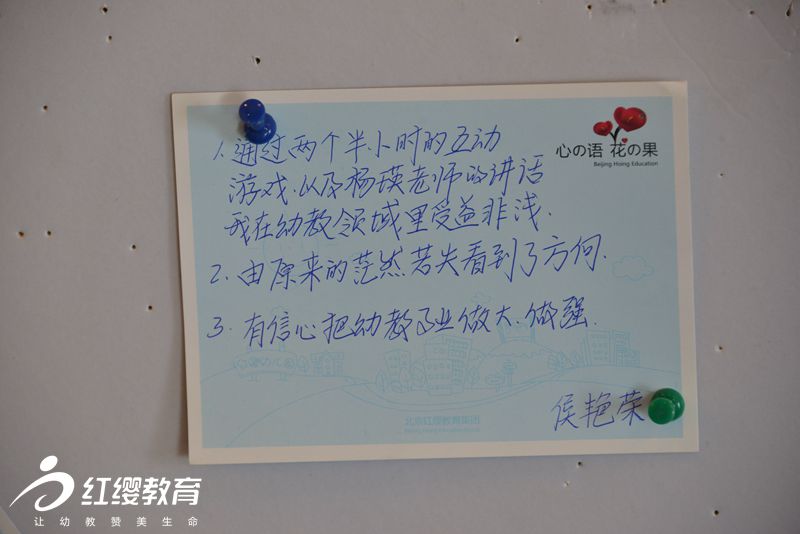 心の语 花の果
Beijing Hoing Education
1. 通过两个半小时的互动
游戏.以及杨瑛老师的讲话
我在幼教领域里受益非浅.
2. 由原来的茫然若失看到了方向.
3. 有信心把幼教事业做大.做强.
侯艳荣
北京红缨教育集团
红缨教育
让幼教赞美生命